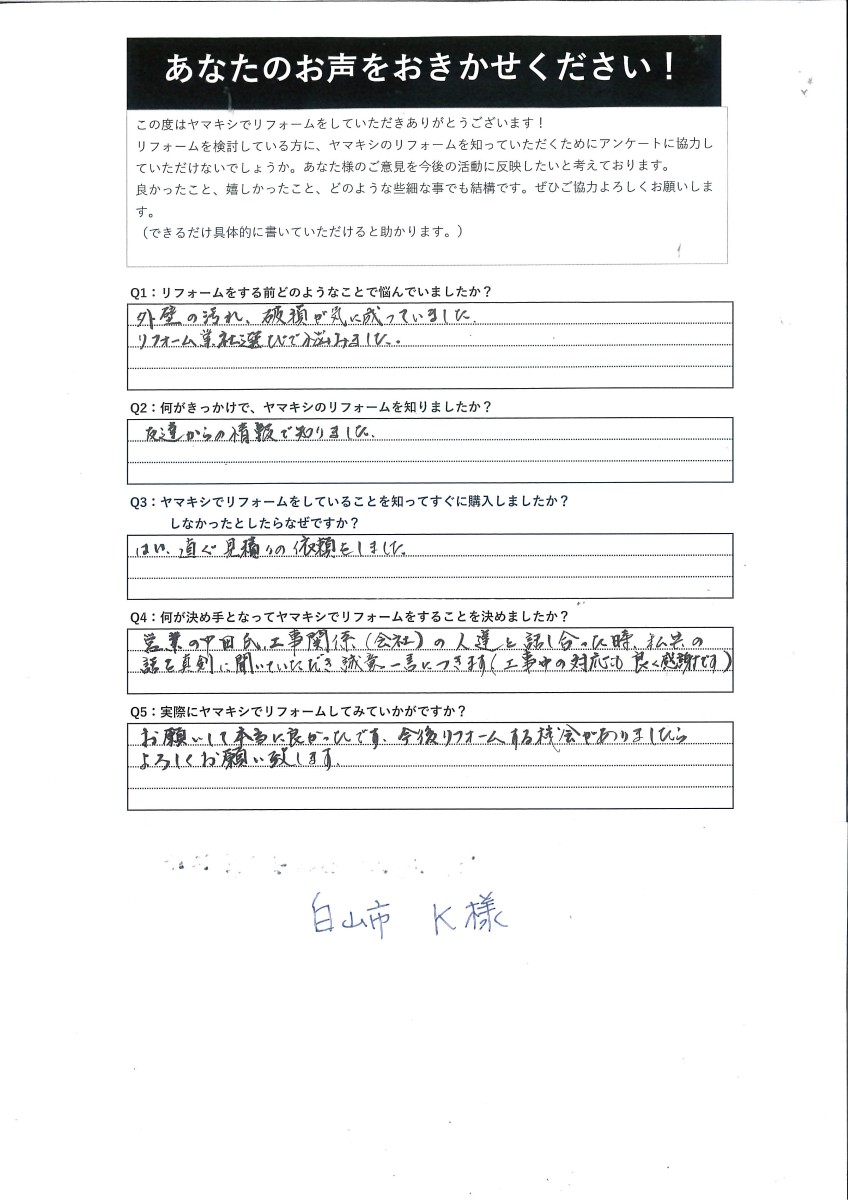 あなたのお声をおきかせください！
この度はヤマキシでリフォームをしていただきありがとうございます！
リフォームを検討している方に、ヤマキシのリフォームを知っていただくためにアンケートに協力し
ていただけないでしょうか。あなた様のご意見を今後の活動に反映したいと考えております。
良かったこと、嬉しかったこと、どのような些細な事でも結構です。ぜひご協力よろしくお願いしま
す。
（できるだけ具体的に書いていただけると助かります。）
Q1：リフォームをする前どのようなことで悩んでいましたか？
外壁の汚れ、破損が気に成っていました。
リフォーム業社選びで悩みました。
Q2：何がきっかけで、ヤマキシのリフォームを知りましたか？
友達からの情報で知りました。
Q3：ヤマキシでリフォームをしていることを知ってすぐに購入しましたか？
しなかったとしたらなぜですか？
はい、直ぐ見積りの依頼をしました。
Q4：何が決め手となってヤマキシでリフォームをすることを決めましたか？
営業の中田氏、工事関係（会社）の人達と話し合った時、私共の
話を真剣に聞いていただき誠意一言につきます（工事中の対応も良く感謝です）
Q5：実際にヤマキシでリフォームしてみていかがですか？
お願いして本当に良かったです。今後リフォームする機会がありましたら
よろしくお願い致します。
白山市 K様